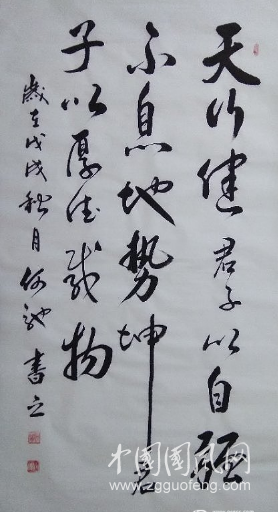 天行健君子以自强
不息地势坤君
子以厚德载物
岁在戊戌秋月何驰书之
中国国风网
www.zgguofeng.com